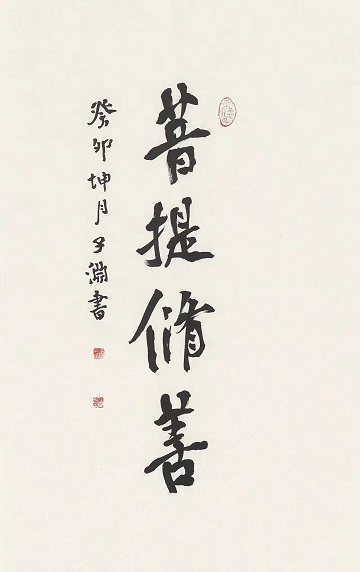 菩提脩善
癸卯坤月子淵書